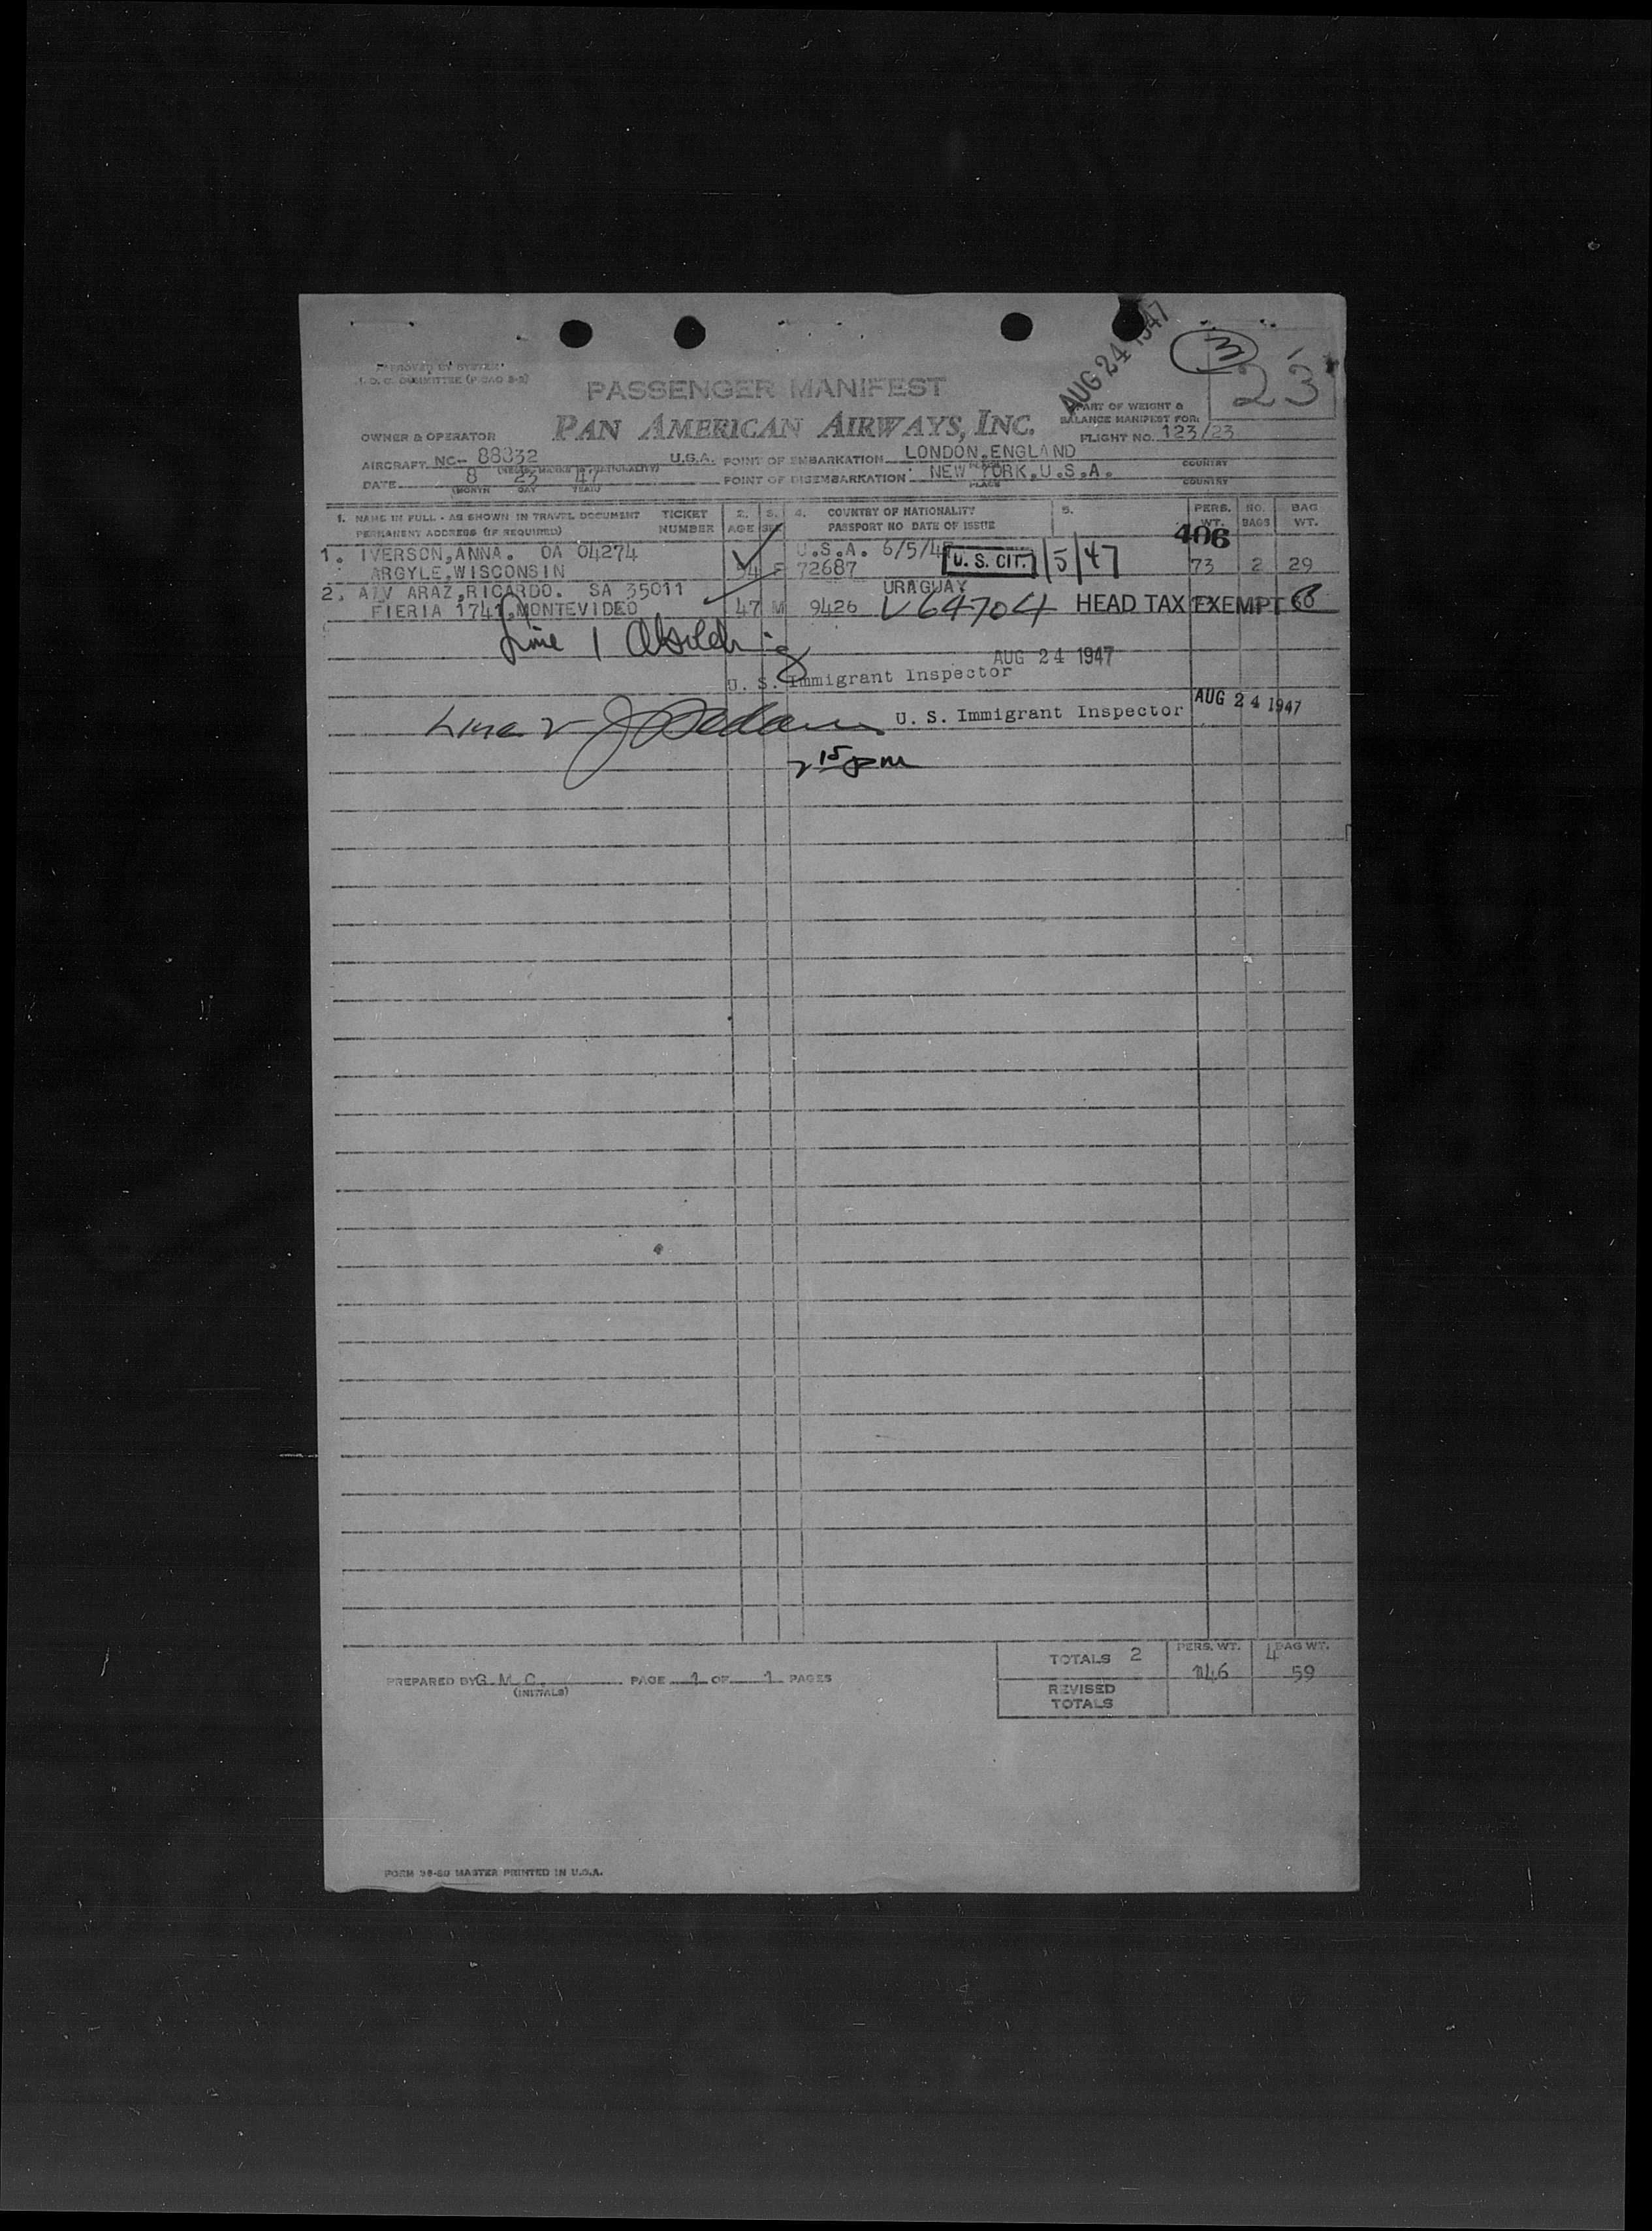 AUG 24 1947
3
23
APPROVED BY SYSTEM
PASSENGER MANIFEST
PAN AMERICAN AIRWAYS, INC.
PART OF WEIGHT &
BALANCE MANIFEST FOR:
FLIGHT NO. 123/23
OWNER & OPERATOR
AIRCRAFT NC- 88832 U.S.A. POINT OF EMBARKATION LONDON,ENGLAND
PLACE COUNTRY
DATE 8 23 47 POINT OF DISEMBARKATION NEW YORK,U.S.A.
(MONTH DAY YEAR) PLACE COUNTRY
1. NAME IN FULL - AS SHOWN IN TRAVEL DOCUMENT TICKET 2. 3. 4. COUNTRY OF NATIONALITY 5. PERS. NO. BAG
PERMANENT ADDRESS (IF REQUIRED) NUMBER AGE SEX PASSPORT NO DATE OF ISSUE WT. BAGS WT.
406
1. IVERSON,ANNA. OA 04274 U.S.A. 6/5/47
ARGYLE,WISCONSIN 54 F 72687 U. S. CIT. /5/47 73 2 29
2. ARAZ,RICARDO. SA 35011 URAGUAY
FIERIA 1741,MONTEVIDEO 47 M 9426 V64704 HEAD TAX EXEMPT
Line 1
AUG 24 1947
U. S. Immigrant Inspector
Line 2 U. S. Immigrant Inspector AUG 24 1947
2 15 pm
TOTALS 2 PERS. WT. 4 BAG WT.
146 59
PREPARED BY G.M.C. PAGE 1 OF 1 PAGES
(INITIALS)
REVISED
TOTALS
MASTER PRINTED IN U.S.A.